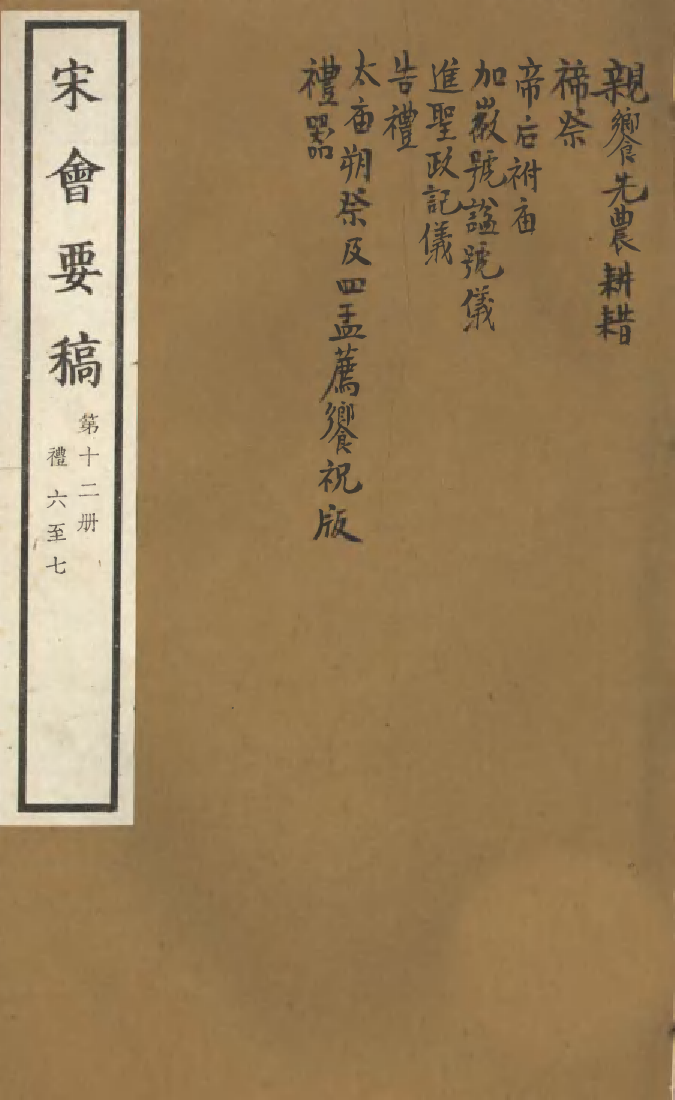 親饗先農耕耤
禘祭
帝后祔庙
加徽號謚號儀
進聖政記儀
告禮
太庙朔祭及四孟薦饗祝版
禮器
宋會要稿
第十二册
禮六至七